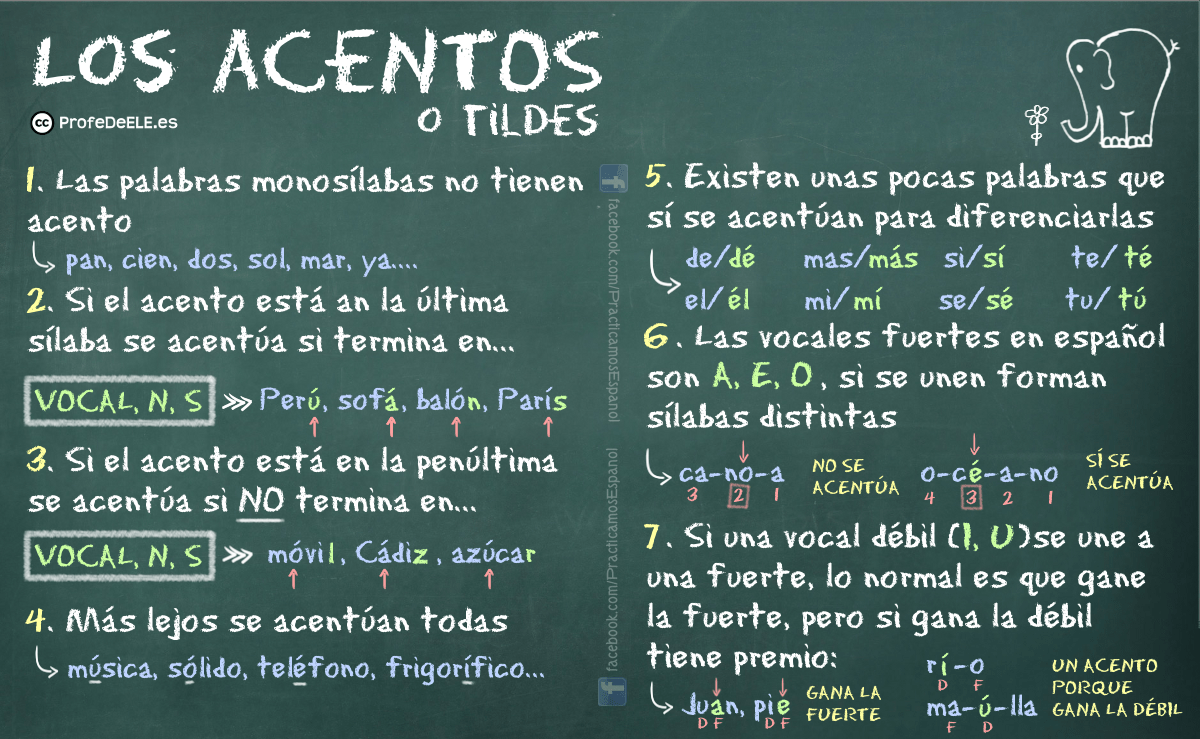 LOS ACENTOS
O TILDES
cc ProfeDeELE.es
1. Las palabras monosílabas no tienen
acento
pan, cien, dos, sol, mar, ya....
2. Si el acento está an la última
sílaba se acentúa si termina en...
VOCAL, N, S >>> Perú, sofá, balón, París
3. Si el acento está en la penúltima
se acentúa si NO termina en...
VOCAL, N, S >>> móvil, Cádiz, azúcar
4. Más lejos se acentúan todas
música, sólido, teléfono, frigorífico...
facebook.com/PracticamosEspanol
facebook.com/PracticamosEspanol
5. Existen unas pocas palabras que
sí se acentúan para diferenciarlas
de/dé mas/más si/sí te/ té
el/ él mi/ mí se/sé tu/ tú
6. Las vocales fuertes en español
son A, E, O, si se unen forman
sílabas distintas
ca-no-a NO SE o-cé-a-no SÍ SE
3 2 1 ACENTÚA 4 3 2 1 ACENTÚA
7. Si una vocal débil (I, U)se une a
una fuerte, lo normal es que gane
la fuerte, pero si gana la débil
tiene premio:
Juan, pie GANA LA
D F D F FUERTE
rí-o UN ACENTO
D F PORQUE
ma-ú-lla GANA LA DÉBIL
F D